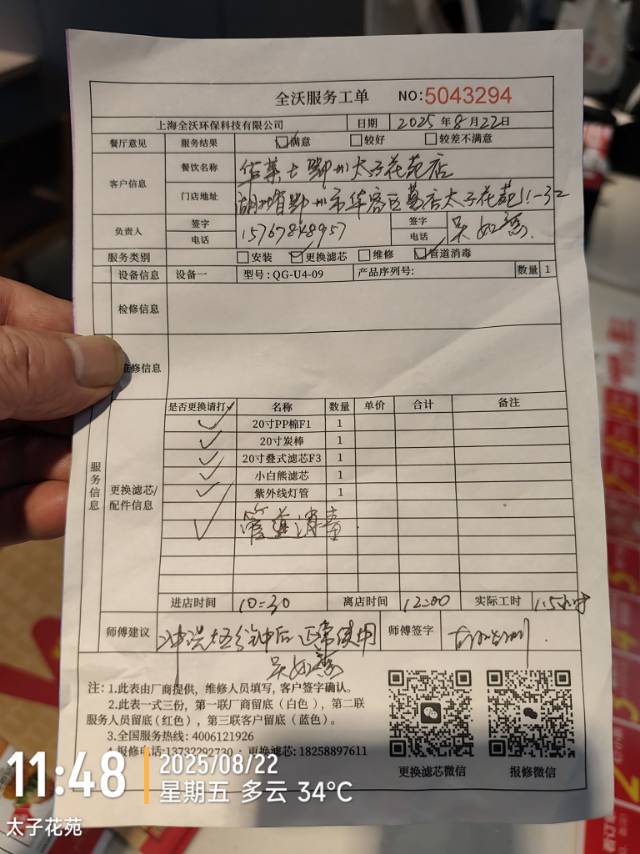 全沃服务工单 NO:5043294
上海全沃环保科技有限公司 日期 2025年8月22日
餐厅意见 服务结果 满意 较好 较差不满意
客户信息 餐饮名称 华莱士鄂州太子花苑店
门店地址 湖北省鄂州市华容区葛店太子花苑
负责人 签字 签字
电话 15767848957 电话
服务类别 安装 更换滤芯 维修 管道消毒
设备信息 设备一 型号:QG-U4-09 产品序列号: 数量 1
检修信息
修信息
服务信息
更换滤芯/配件信息
是否更换请打✓ 名称 数量 单价 合计 备注
✓ 20寸PP棉F1 1
✓ 20寸炭棒 1
✓ 20寸叠式滤芯F3 1
✓ 小白熊滤芯 1
✓ 紫外线灯管 1
✓ 管道消毒
进店时间 10:30 离店时间 12:00 实际工时 1.5小时
师傅建议 冲洗5分钟后正常使用 师傅签字
注:1.此表由厂商提供,维修人员填写,客户签字确认。
2.此表一式三份,第一联厂商留底(白色),第二联
服务人员留底(红色),第三联客户留底(蓝色)。
3.全国服务热线:4006121926
4.报修电话:13732292730 更换滤芯:18258897611
更换滤芯微信 报修微信
11:48 2025/08/22
星期五 多云 34℃
太子花苑